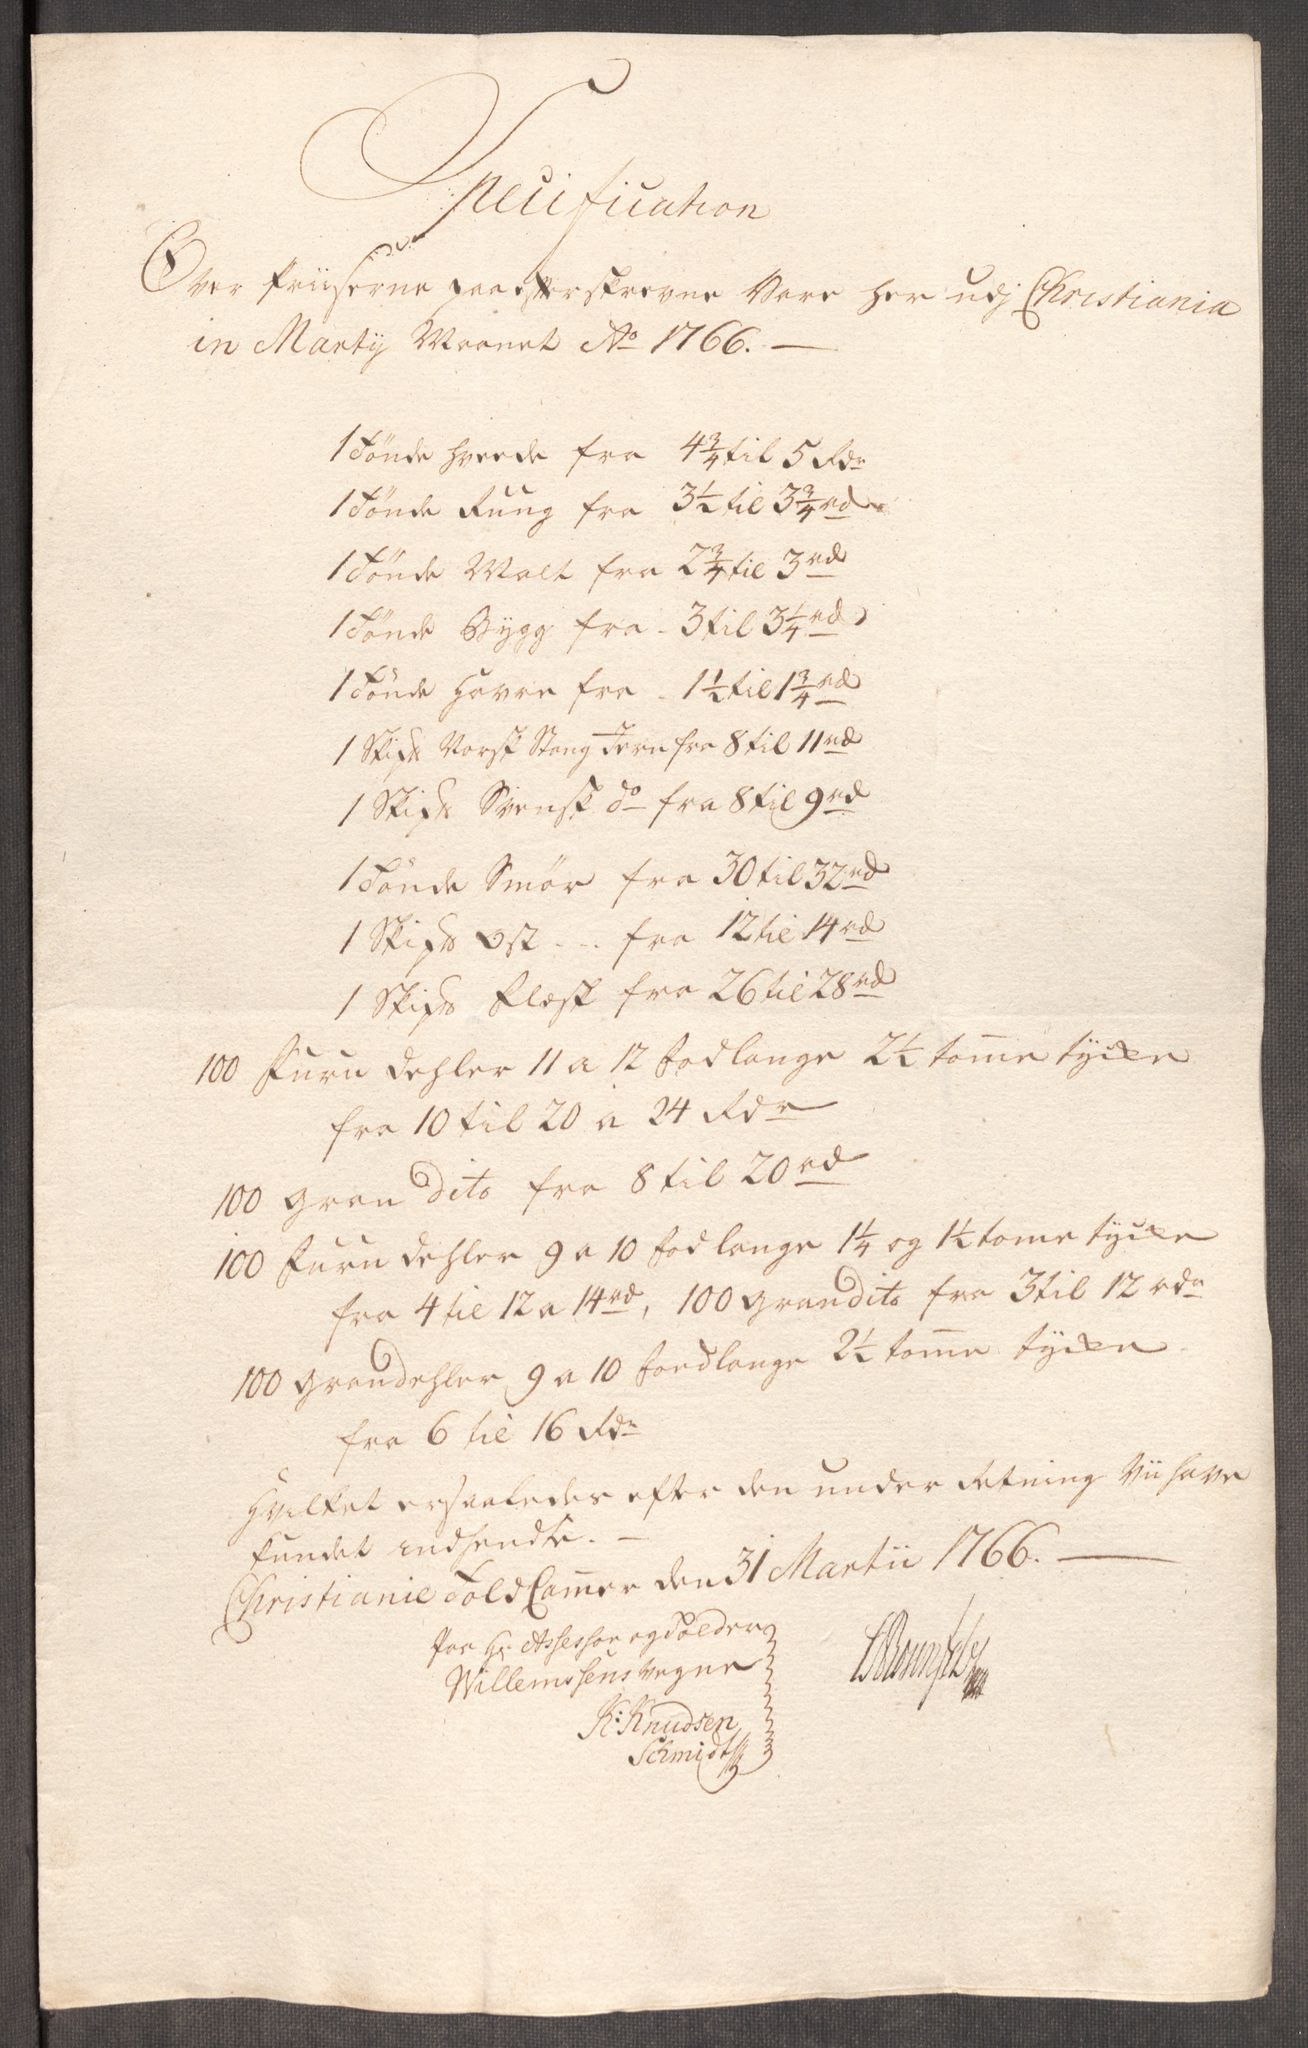 Specification
Over Priiserne paa efterskrevne Vare her udj Christiania
in Martij Maanet Ao 1766. —
1 Tönde Hveede fra 4 3/4 til 5 Rdr
1 Tönde Rüug fra 3 1/2 til 3 3/4 rdr
1 Tönde Malt fra 2 3/4 til 3 rd
1 Tönde Bÿgg fra - 3 til 3 1/4 rd
1 Tönde Havre fra - 1 1/2 til 1 3/4 rd
1 Skip℔ Norsk Stang Jern fra 8 til 11 rd
1 Skip℔ Svensk do fra 8 til 9 rd
1 Tönde Smör fra 30 til 32 rd
1 Skip℔ Ost ... fra 12 til 14 rd
1 Skip℔ Flesk fra 26 til 28 rd
100 Furu dehler 11 a 12 fod lange 2 1/2 tom̅e tÿcke
fra 10 til 20 a 24 Rdr
100 gran dito fra 8 til 20 rd
100 Furu dehler 9 a 10 fod lange 1 1/4 og 1 1/2 tome tycke
fra 4 til 12 a 14 rd, 100 gran dito fra 3 til 12 rdr
100 grandehler 9 a 10 foed lange 2 1/2 tom̅e tÿcke
fra 6 til 16 Rdr
Hvilket ersaaledes efter den under Retning Vii have
fundet indsendte. —
Christianie Told Cam̅er den 31 Martii 1766. —
Paa Hr Assessor og Tolder
Willemssens Vegne
K: Knudsen
Schmidt